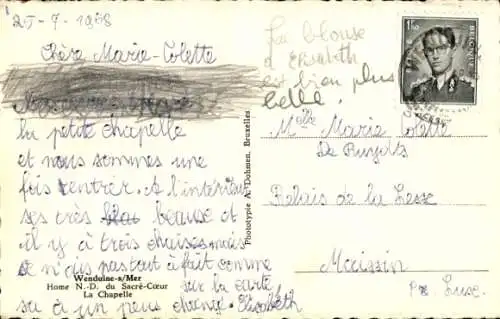 25-7-1968
Chère Marie-Colette
la petite chapelle
et nous sommes une
fois rentrer. A l'intérieur
ses très beause et
il y à trois chaises mais
se n'ais pas tout à fait comme
sur la carte,
sa à un peus changé. Elisabeth
La blouse
d'Elisabeth
est bien plus
belle!
BELGIE-BELGIQUE
Melle Marie Colette
De Ruydts
Relais de la Lesse
Maissin
Pr. Lux.
Phototypie A. Dohmen, Bruxelles
Wenduine-s/Mer
Home N.-D. du Sacré-Cœur
La Chapelle